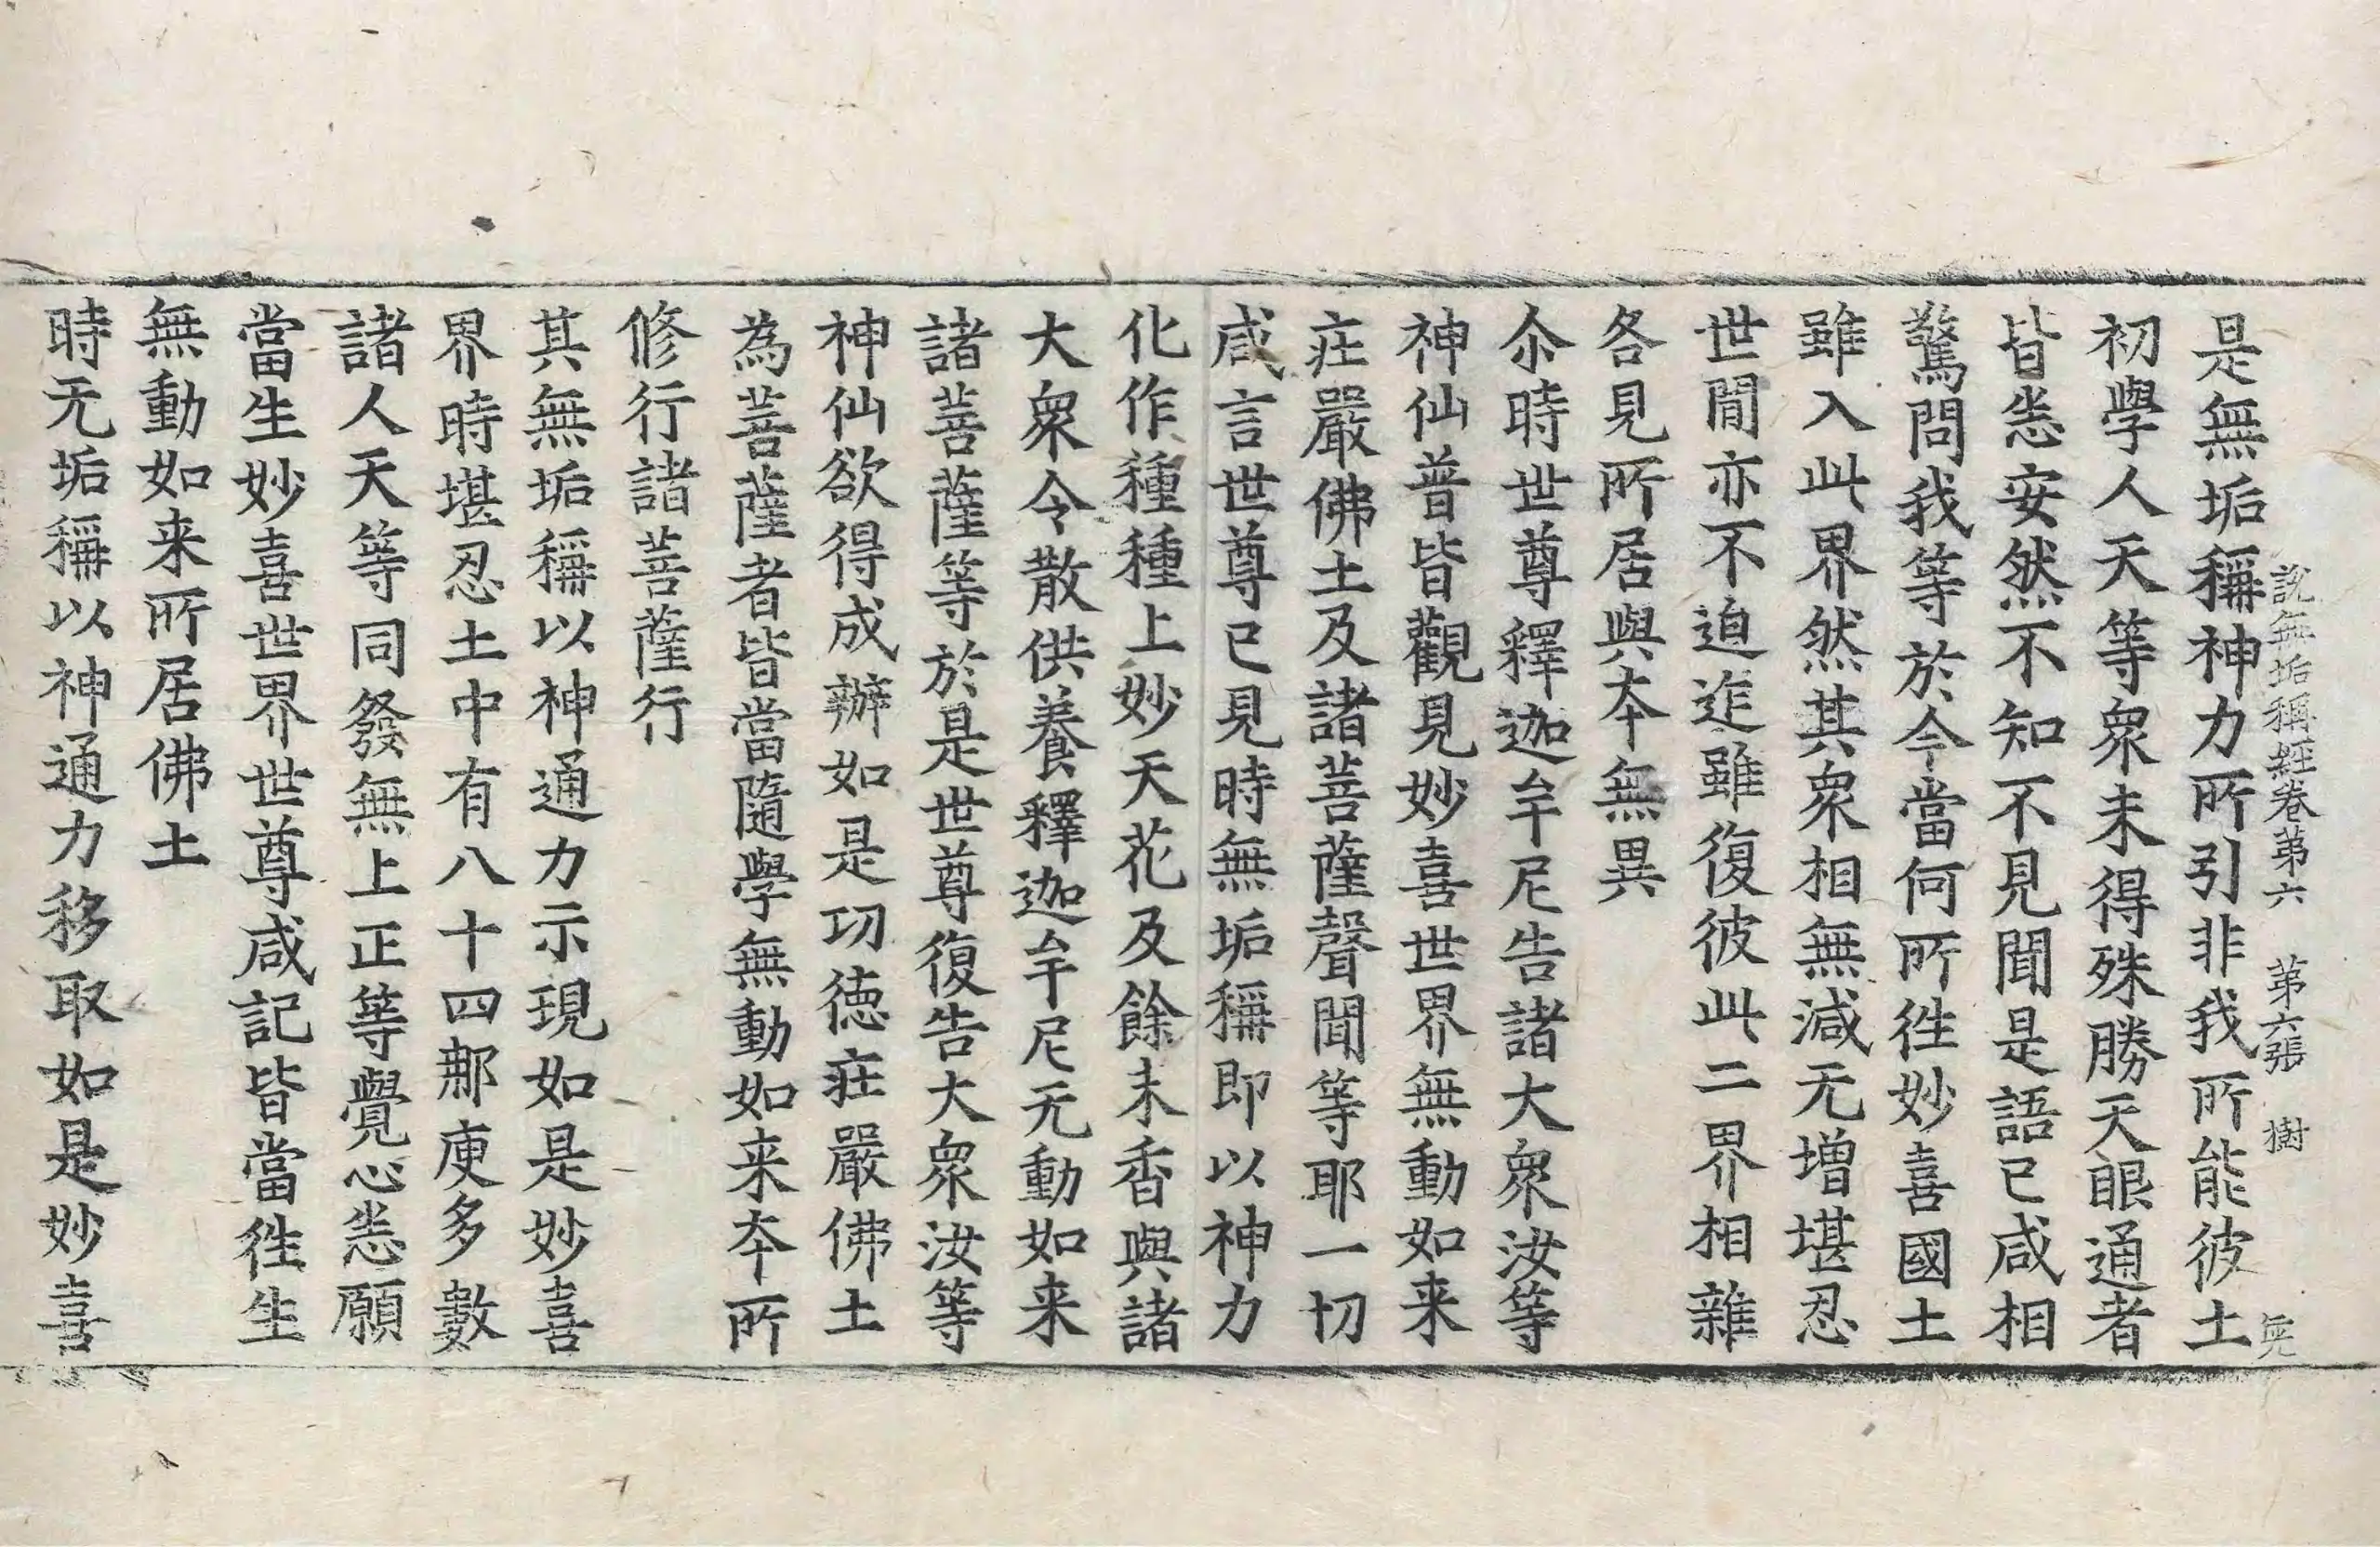 說無垢稱經卷第六 第六張 樹
是無垢稱神力所引非我所能彼土
初學人天等衆未得殊勝天眼通者
皆悉安然不知不見聞是語已咸相
驚問我等於今當何所徃妙喜國土
雖入此界然其衆相無減无增堪忍
世間亦不迫迮雖復彼此二界相雜
各見所居與夲無異
尒時世尊釋迦牟尼告諸大衆汝等
神仙普皆觀見妙喜世界無動如来
莊嚴佛土及諸菩薩聲聞等耶一切
咸言世尊已見時無垢稱即以神力
化作種種上妙天花及餘末香與諸
大衆令散供養釋迦牟尼无動如来
諸菩薩等於是世尊復告大衆汝等
神仙欲得成辦如是功德莊嚴佛土
為菩薩者皆當隨學無動如来夲所
修行諸菩薩行
其無垢稱以神通力示現如是妙喜
界時堪忍土中有八十四那庾多數
諸人天等同發無上正等覺心悉願
當生妙喜世界世尊咸記皆當徃生
無動如来所居佛土
時无垢稱以神通力移取如是妙喜